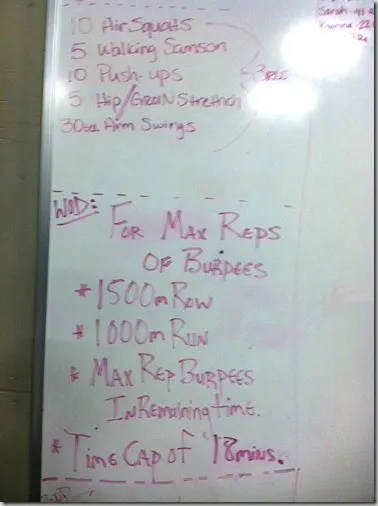 10 Air Squats
5 Walking Samson
10 Push-ups
5 Hip/Groin Stretch
30sec Arm Swings
Sarah
WOD:
For Max Reps
Of Burpees
* 1500m Row
* 1000m Run
* Max Rep Burpees
In Remaining time.
* Time Cap of 18mins.